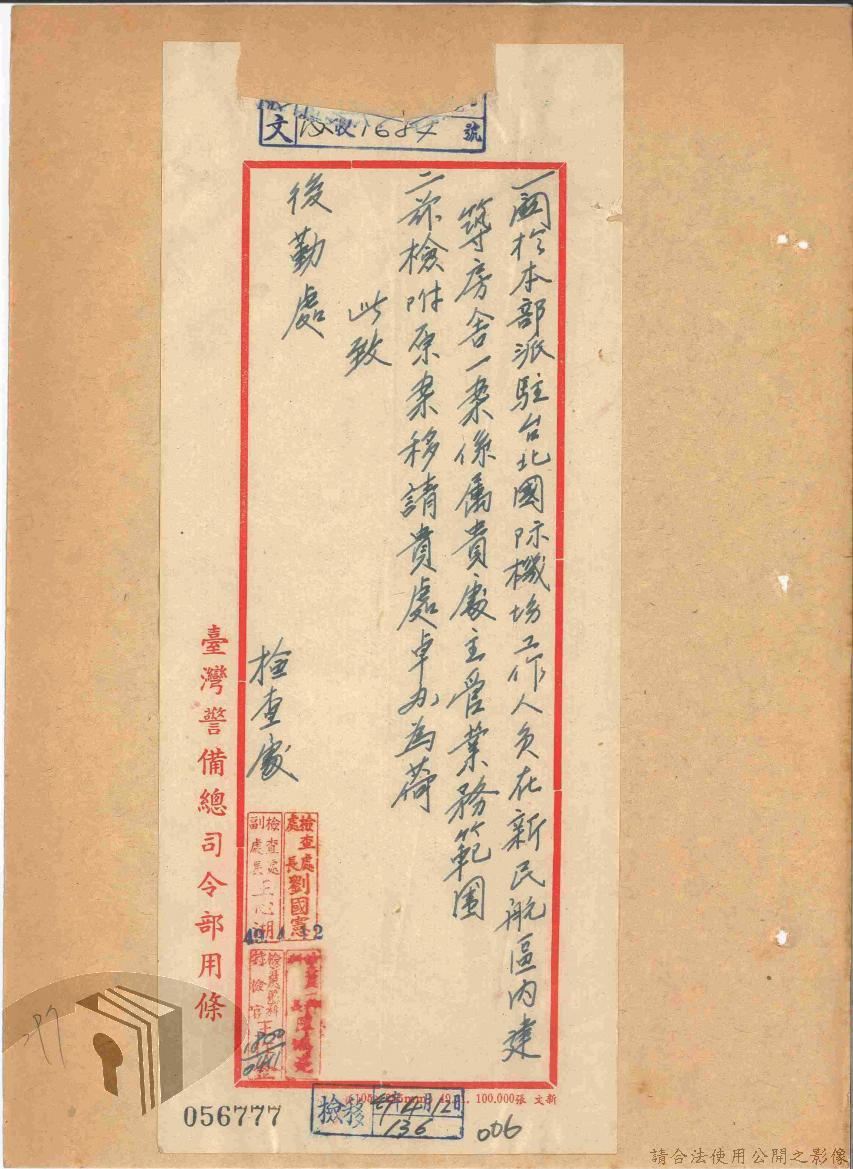 文 收1684號
一關於本部派駐台北國际機場工作人員在新民航區内建
築房舍一案係属貴處主管業務範圍
二茲檢附原案移請貴處卓办為荷
此致
後勤處
檢查處
檢查處處長劉國憲
檢查處副處長王心湖
49 4 12
臺灣警備總司令部用條
100.000張 文新
檢移 49年4月12日
136
006
056777
請合法使用公開之影像